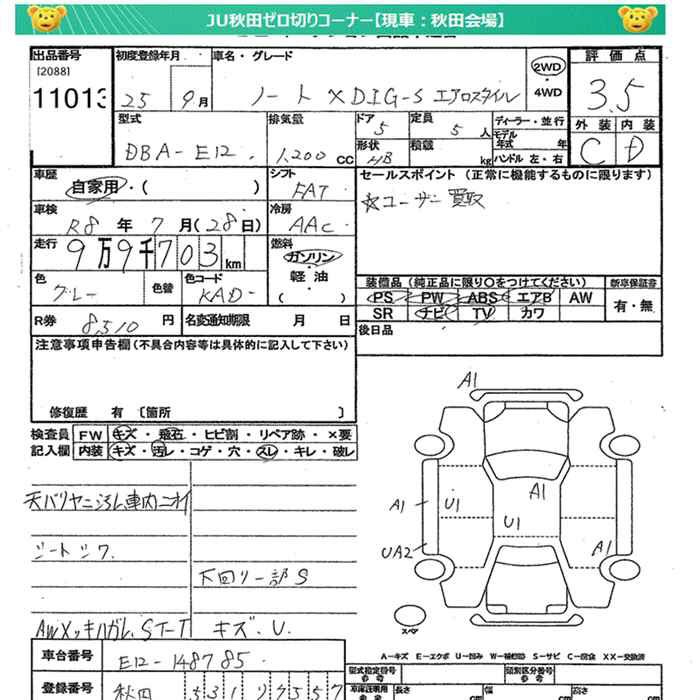 JU秋田ゼロ切りコーナー【現車：秋田会場】
出品番号 初度登録年月 車名・グレード 評価点
(2088)
11013 25 9月 ノート X DIG-S エアロスタイル 2WD・4WD 3.5
型式 排気量 ドア 5 定員 5人 ディーラー・並行 外装 内装
DBA-E12 1,200cc 形状 HB 積載 kg モデル年式 年 ハンドル 左・右 C D
車歴 自家用・( ) シフト FAT セールスポイント（正常に機能するものに限ります）
車検 R8年 7月(28日) 冷房 AAC ☆ユーザー買取
走行 9万9千703km 燃料 ガソリン・軽油( )
色 グレー 色替 色コード KAD 装備品（純正品に限り○をつけてください） 新車保証書
PS PW ABS エアB AW 有・無
R券 8,510円 名変通知期限 月 日 SR ナビ TV カワ
後日品
注意事項申告欄（不具合内容等は具体的に記入して下さい）
修復歴 有〔箇所 〕
検査員 FW キズ・飛石・ヒビ割・リペア跡・×要
記入欄 内装 キズ・汚レ・コゲ・穴・スレ・キレ・破レ
車内ニオイ
シートシワ
下回リ一部S
キズ.U.
A1
A1
A1 U1
U1
UA2 A1
スペア
A-キズ E-エクボ U-凹み W-補修跡 S-サビ C-腐食 XX-交換済
車台番号 E12-148785 型式指定番号 参考 類別区分番号 参考
登録番号 秋田 長さ cm 幅 cm 高さ cm